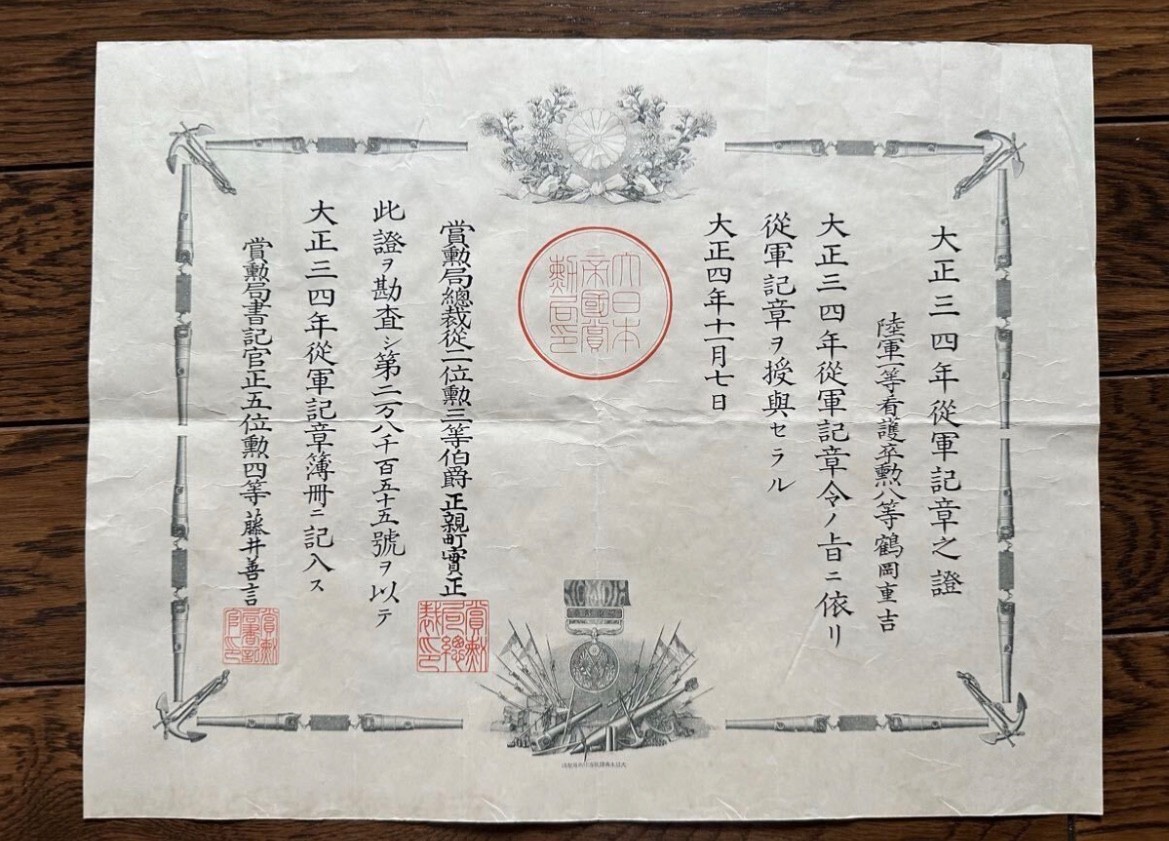 大正三四年從軍記章之證
陸軍一等看護卒勲八等鶴岡重吉
大正三四年從軍記章令ノ旨ニ依リ
從軍記章ヲ授與セラル
大正四年十一月七日
大日本
帝國賞
勲局印
賞勲局總裁從二位勲三等伯爵正親町實正
賞勲
局總
裁印
此證ヲ勘査シ第二万八千百五十五號ヲ以テ
大正三四年從軍記章簿冊ニ記入ス
賞勲局書記官正五位勲四等藤井善言
賞勲
局書記
官印